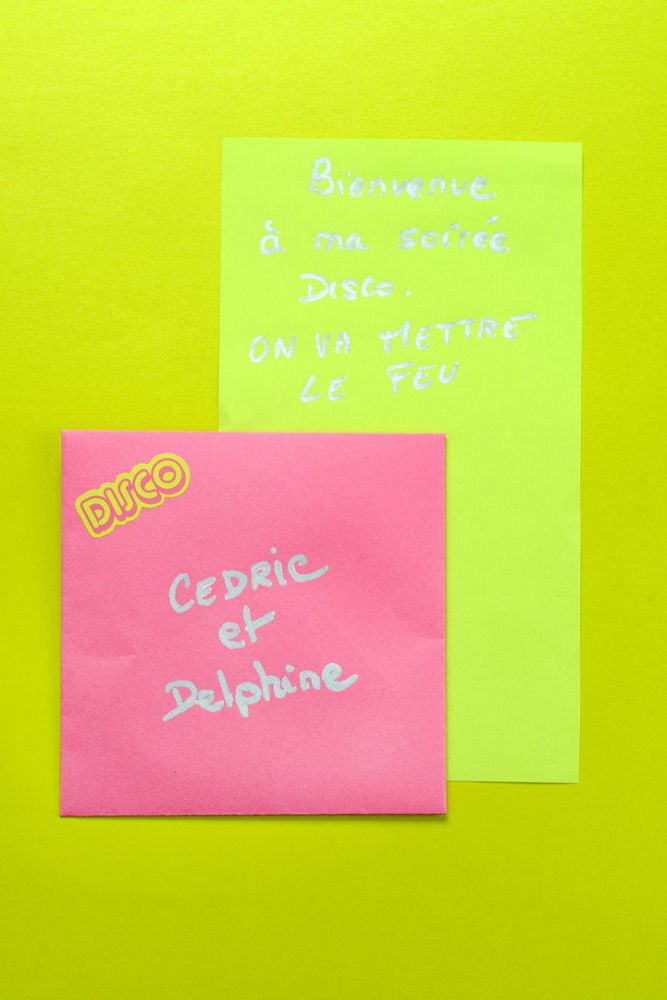 Bienvenue
à ma soirée
Disco.
ON VA METTRE
LE FEU
DISCO
CEDRiC
et
Delphine